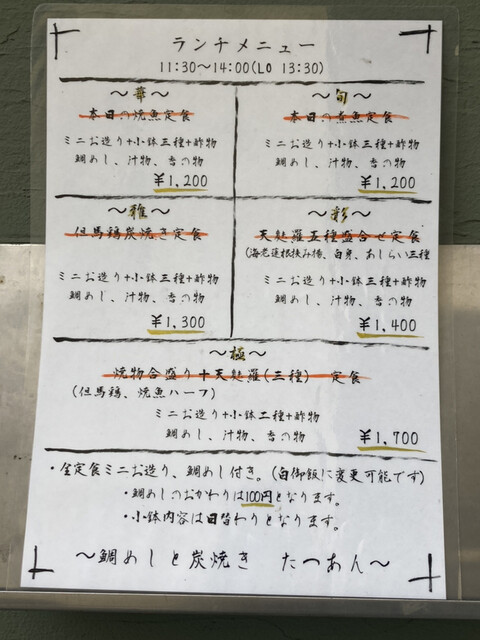 ランチメニュー
11:30〜14:00(LO 13:30)
〜華〜
本日の焼魚定食
ミニお造り+小鉢三種+酢物
鯛めし、汁物、香の物
¥1,200
〜旬〜
本日の煮魚定食
ミニお造り+小鉢三種+酢物
鯛めし、汁物、香の物
¥1,200
〜雅〜
但馬鶏炭焼き定食
ミニお造り+小鉢三種+酢物
鯛めし、汁物、香の物
¥1,300
〜彩〜
天麩羅五種盛合せ定食
(海老蓮根挟み揚、白身、あしらい三種
ミニお造り+小鉢三種+酢物
鯛めし、汁物、香の物
¥1,400
〜極〜
焼物合盛り+天麩羅(三種) 定食
(但馬鶏、焼魚ハーフ)
ミニお造り+小鉢二種+酢物
鯛めし、汁物、香の物
¥1,700
・全定食ミニお造り、鯛めし付き。(白御飯に変更可能です)
・鯛めしのおかわりは100円となります。
・小鉢内容は日替わりとなります。
〜鯛めしと炭焼き たつあん〜